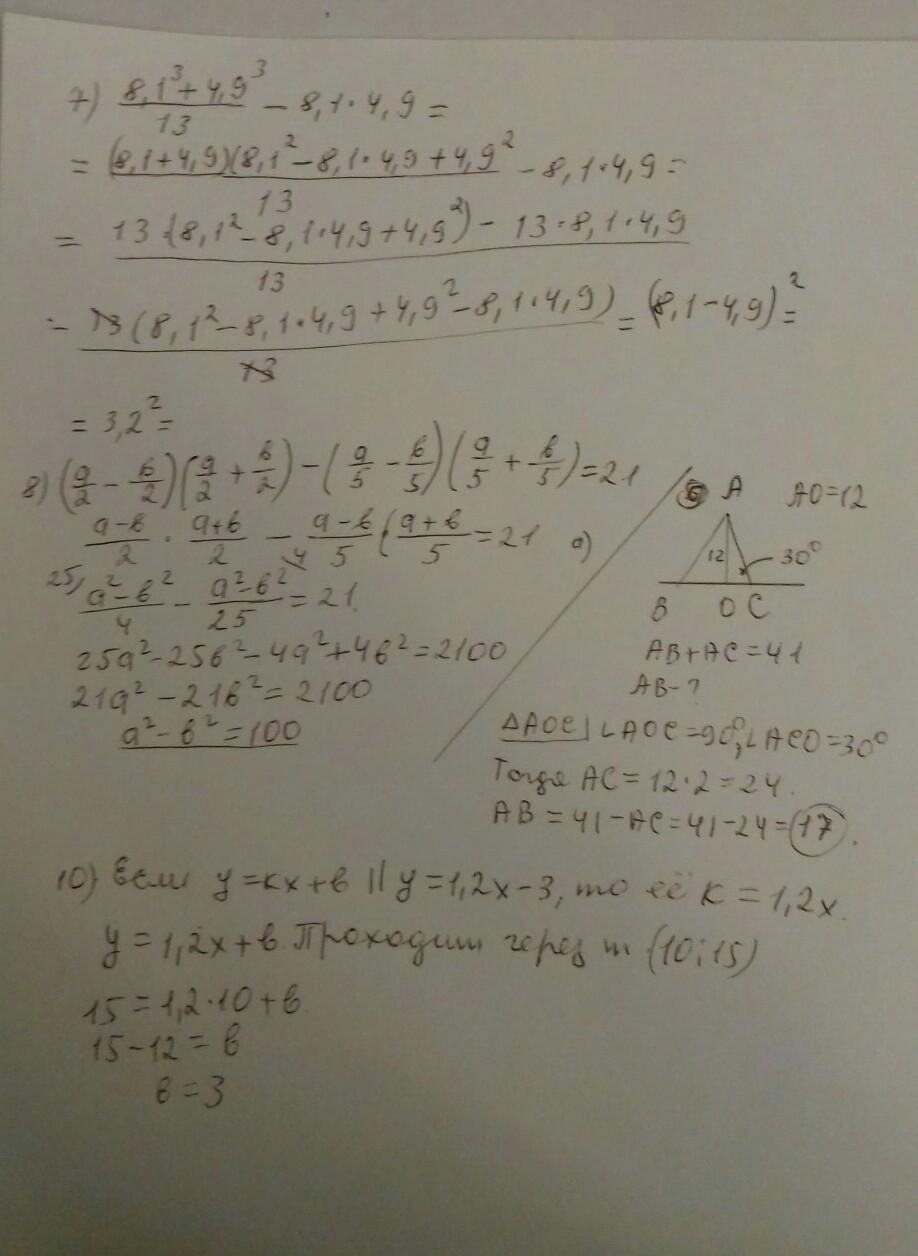 7) (8,1³+4,9³)/13 − 8,1·4,9 =
= (8,1+4,9)(8,1²−8,1·4,9+4,9²/13 − 8,1·4,9 =
= 13·(8,1²−8,1·4,9+4,9²)− 13·8,1·4,9/13
= 13(8,1²−8,1·4,9+4,9²−8,1·4,9)/13 = (8,1−4,9)² =
= 3,2² =
8) (a/2 − b/2)(a/2 + b/2) − (a/5 − b/5)(a/5 + b/5) = 21
a−b/2 · a+b/2 − a−b/5 (a+b/5 = 21
25/ a²−b²/4 − 4/ a²−b²/25 = 21.
25a²−25b²−4a²+4b²=2100
21a²−21b²=2100
a²−b²=100
A AO=12
12 30°
B O C
AB+AC=41
AB−?
△AOC| ∠AOC=90°, ∠ACO=30°
Тогда AC=12·2=24.
AB=41−AC=41−24=17.
10) Если y=кx+b || y=1,2x−3, то её к=1,2x.
y=1,2x+b. Проходит через т (10;15)
15=1,2·10+b.
15−12=b
b=3